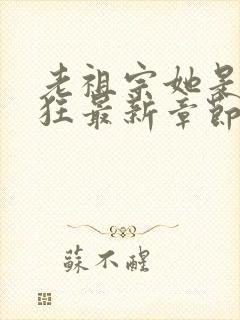 老祖宗她是
狂最新章節
蘇不醒